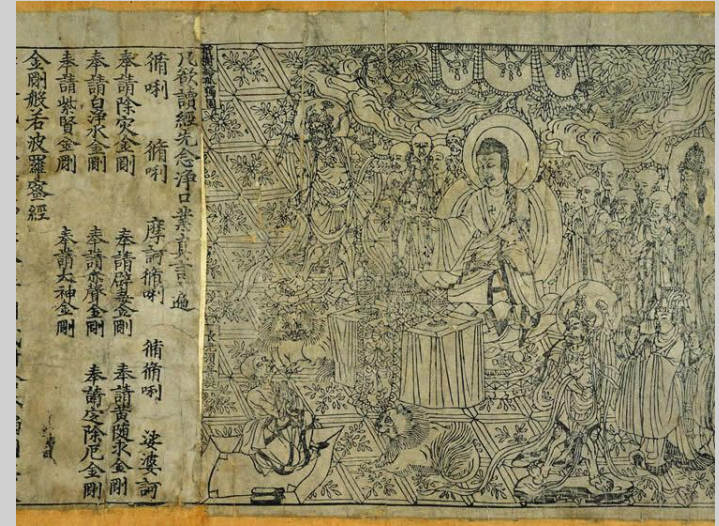 凡欲讀經先念淨口業真言遍
脩唎 脩唎 摩訶脩唎 脩脩唎 娑婆訶
奉請除災金剛 奉請辟毒金剛 奉請黃隨求金剛
奉請白淨水金剛 奉請赤聲金剛 奉請定除厄金剛
奉請紫賢金剛 奉請大神金剛
金剛般若波羅蜜經